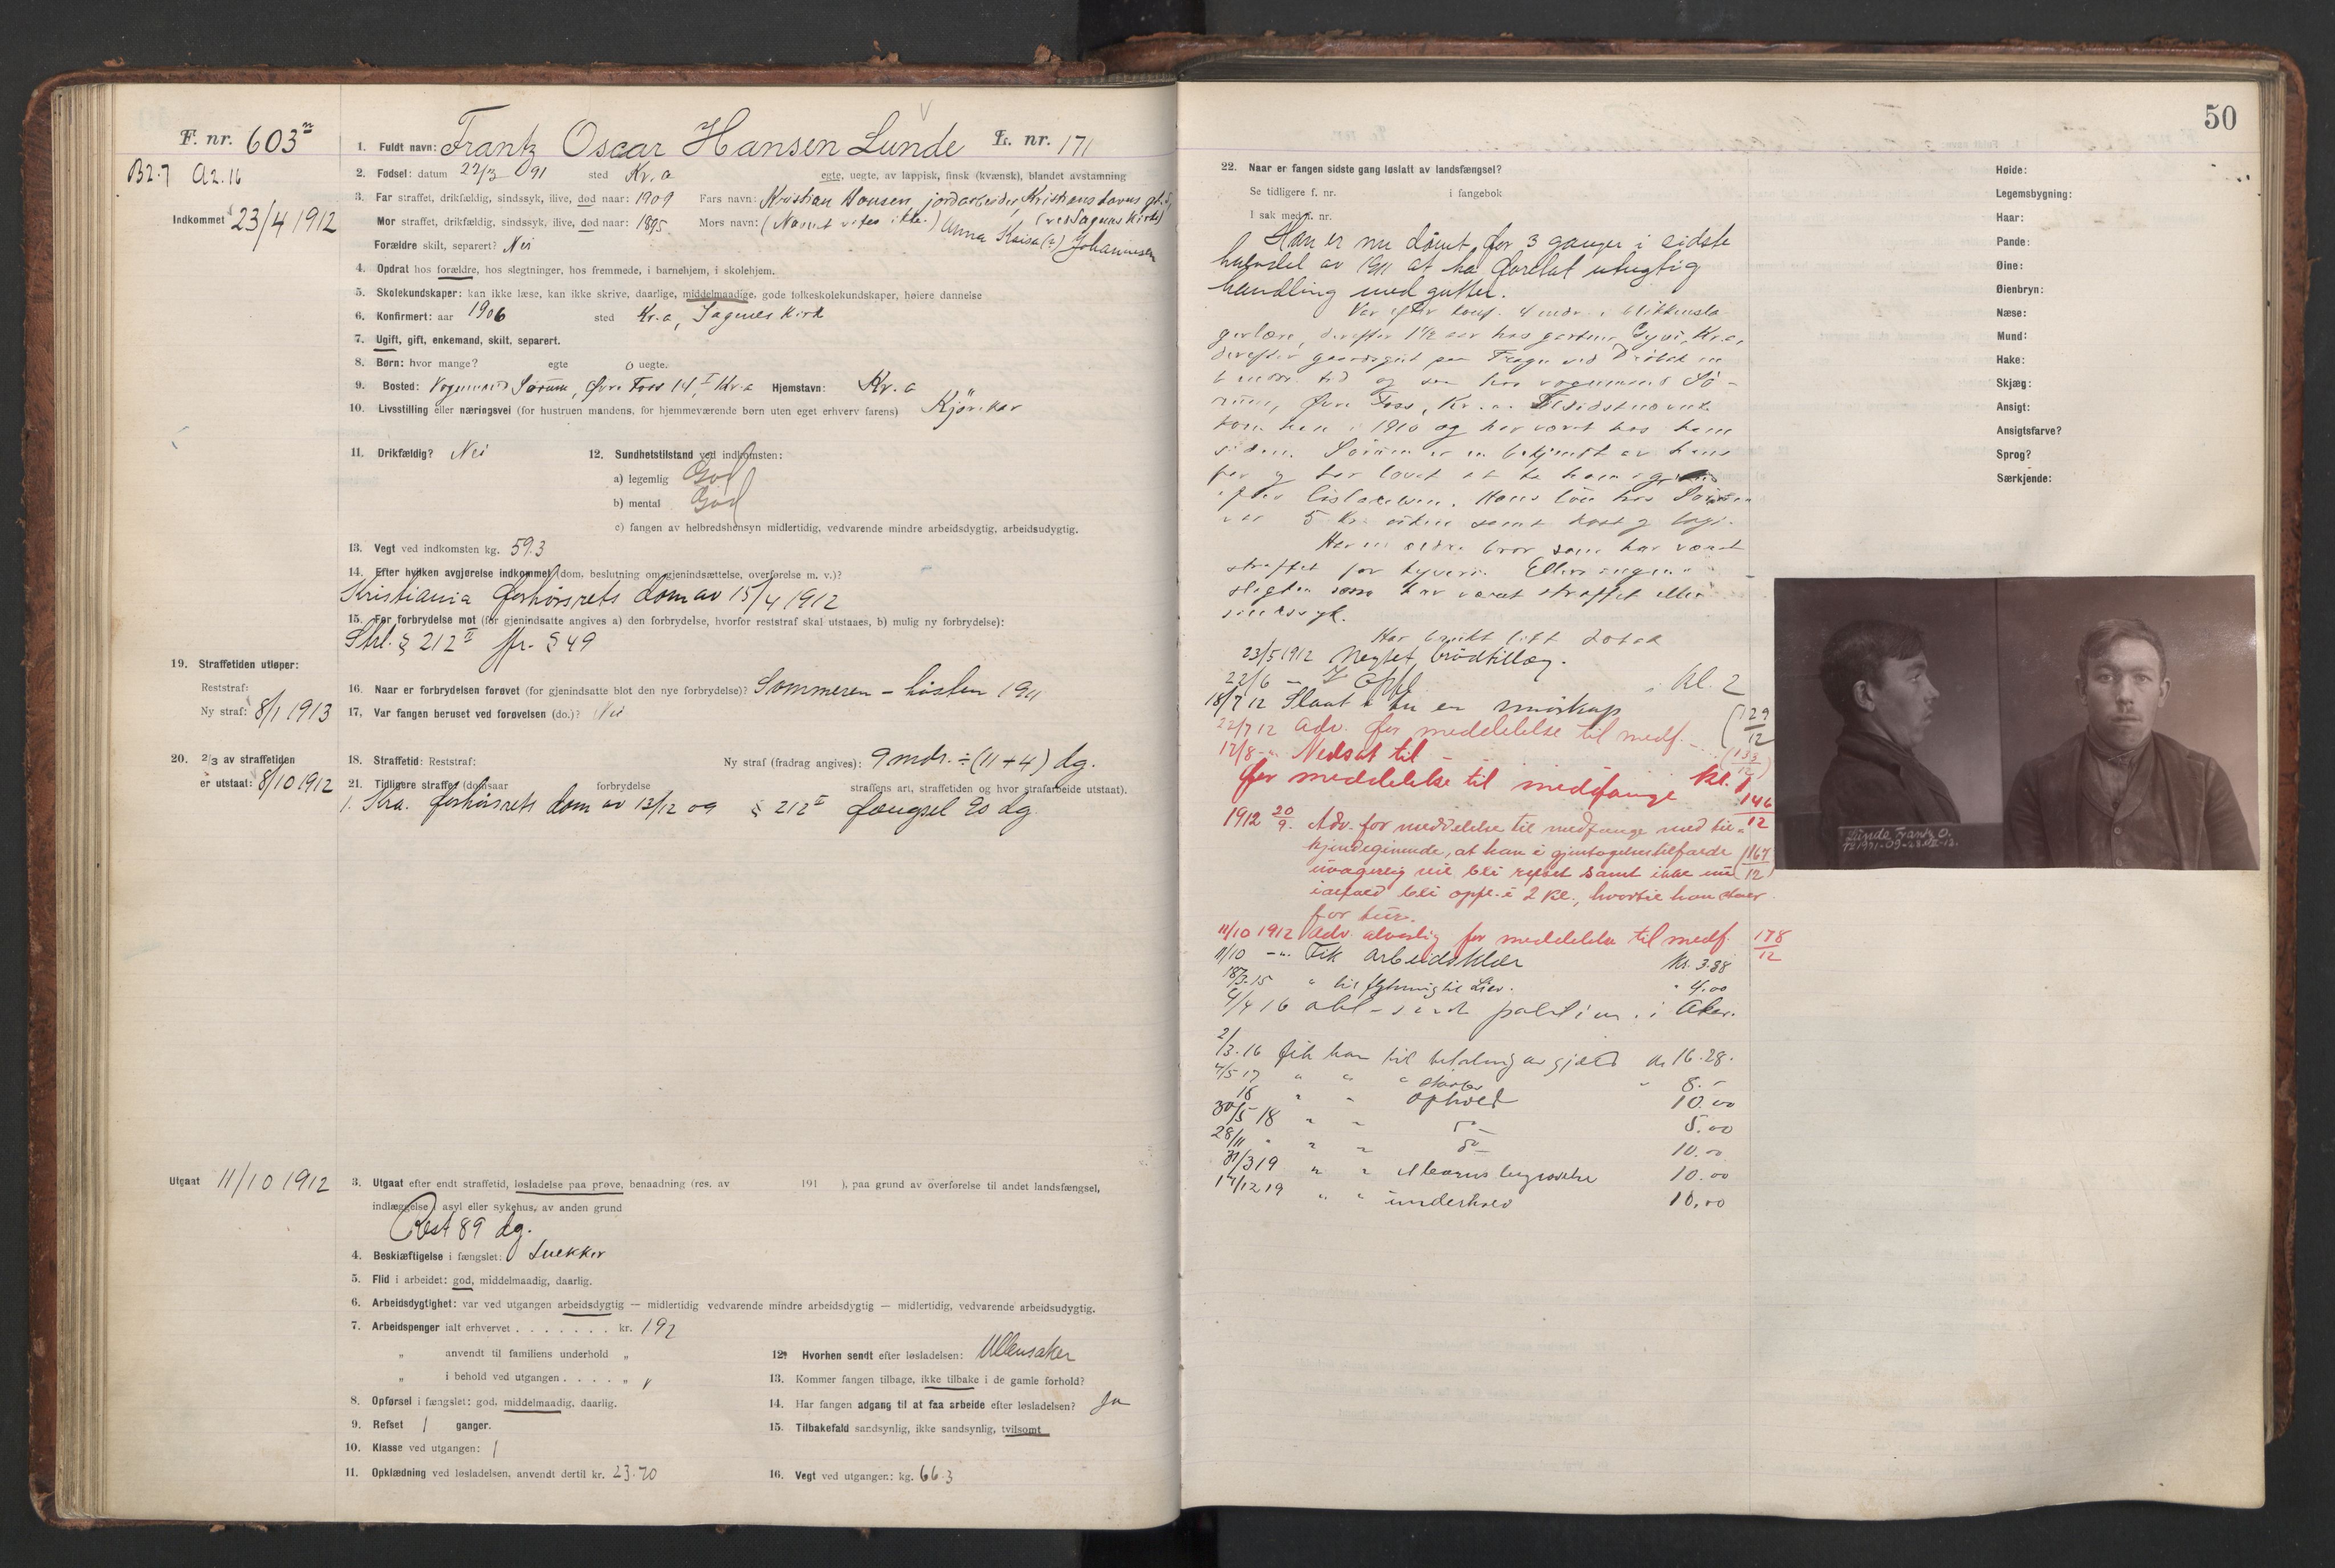 F. nr. 603 n
B2.7 A2.16
Indkommet 23/4 1912
1. Fuldt navn: Frantz Oscar Hansen Lunde L. nr. 171
2. Fødsel: datum 22/3 91 sted Kr.a egte, uegte, av lappisk, finsk (kvænsk), blandet avstamning
3. Far straffet, drikfældig, sindssyk, ilive, død naar: 1909 Fars navn: Kristian Hansen, jordarbeider, Kristians Lavus gt. 5,
Mor straffet, drikfældig, sindssyk, ilive, død naar: 1895 Mors navn: (Navnet vites ikke.) (ved Sagenes Kirke)
Anna Kaisa (?) Johannesen
Forældre skilt, separert? Nei
4. Opdrat hos forældre, hos slegtninger, hos fremmede, i barnehjem, i skolehjem.
5. Skolekundskaper: kan ikke læse, kan ikke skrive, daarlige, middelmaadige, gode folkeskolekundskaper, høiere dannelse
6. Konfirmert: aar 1906 sted Kr.a, Sagenes Kirke
7. Ugift, gift, enkemand, skilt, separert.
8. Børn: hvor mange? egte 0 uegte.
9. Bosted: Vognmand Sørum, Øvre Foss 14 I, Kr.a Hjemstavn: Kr.a
10. Livsstilling eller næringsvei (for hustruen mandens, for hjemmeværende børn uten eget erhverv farens) Kjørekar
11. Drikfældig? Nei 12. Sundhetstilstand ved indkomsten:
a) legemlig God
b) mental God
c) fangen av helbredshensyn midlertidig, vedvarende mindre arbeidsdygtig, arbeidsudygtig.
13. Vegt ved indkomsten kg. 59.3
14. Efter hvilken avgjørelse indkommet (dom, beslutning om gjenindsættelse, overførelse m. v.)?
Kristiania forhørsrets dom av 15/4 1912
15. For forbrydelse mot (for gjenindsatte angives a) den forbrydelse, hvorfor reststraf skal utstaaes, b) mulig ny forbrydelse):
Strl. § 212 II jfr. § 49
19. Straffetiden utløper:
Reststraf:
Ny straf: 8/1 1913
16. Naar er forbrydelsen forøvet (for gjenindsatte blot den nye forbrydelse)? Sommeren – høsten 1911
17. Var fangen beruset ved forøvelsen (do.)? Nei
20. 2/3 av straffetiden
er utstaat: 8/10 1912
18. Straffetid: Reststraf: Ny straf (fradrag angives): 9 mdr. ÷ (11 + 4) dg.
21. Tidligere straffet (domsaar forbrydelse straffens art, straffetiden og hvor strafarbeide utstaat).
1. Kra. forhørsrets dom av 13/12 09 § 212 II fængsel 90 dg.
Utgaat 11/10 1912
3. Utgaat efter endt straffetid, løsladelse paa prøve, benaadning (res. av 191 ), paa grund av overførelse til andet landsfængsel,
indlæggelse i asyl eller sykehus, av anden grund
Rest 89 dg.
4. Beskiæftigelse i fængslet: Snekker
5. Flid i arbeidet: god, middelmaadig, daarlig.
6. Arbeidsdygtighet: var ved utgangen arbeidsdygtig — midlertidig vedvarende mindre arbeidsdygtig — midlertidig, vedvarende arbeidsudygtig.
7. Arbeidspenger ialt erhvervet . . . . . . . kr. 192
„ anvendt til familiens underhold „
„ i behold ved utgangen . . . . . „
8. Opførsel i fængslet: god, middelmaadig, daarlig.
9. Refset 1 ganger.
10. Klasse ved utgangen: 1
11. Opklædning ved løsladelsen, anvendt dertil kr. 23.70
12. Hvorhen sendt efter løsladelsen: Ullensaker
13. Kommer fangen tilbage, ikke tilbake i de gamle forhold?
14. Har fangen adgang til at faa arbeide efter løsladelsen? Ja
15. Tilbakefald sandsynlig, ikke sandsynlig, tvilsomt
16. Vegt ved utgangen: kg. 66.3
50
22. Naar er fangen sidste gang løslatt av landsfængsel?
Se tidligere f. nr. i fangebok
I sak med f. nr.
Han er nu dømt for 3 ganger i sidste
halvdel av 1911 at ha foretat utugtig
handling med gutter.
Var efter konf. 4 mdr. i blikkensla
gerlære, derefter 1½ aar hos gartner Kr.a,
derefter paa ved Drøbak en
tid og saa hos vognmand Sø-
rum, Øvre Foss, Kr.a. Til sidstnævnte
kom han i 1910 og har været hos ham
siden. Sørum er en bekjendt av hans
far og har lovet at ta ham igjen
efter løslatelsen. Hans løn hos Sørum
var 5 kr. uken samt kost og logi.
Har en ældre bror som har været
straffet for tyveri. Ellers ingen i
slegten som har været straffet eller
sindssyk.
Har brukt litt tobak
23/5 1912 Negtet brødtillæg.
22/6 — Oppf. i kl. 2
18/7 12 Slaat itu en (129/12)
22/7 12 Adv. for meddelelse til medf. (133/12)
17/8 – „ Nedsat til
for meddelelse til medfange kl. 1 146/12
1912 20/9. Adv. for meddelelse til medfange med til-
kjendegivende, at han i gjentagelsestilfælde (167/12)
uvægerlig vil bli refset samt ikke
ialfald bli oppf. i 2 kl., hvortil han staar
for tur.
11/10 1912 Adv. alvorlig for meddelelse til medf. 178/12
11/10 –„– Fik arbeidsklær kr. 3.38
18/3.15 „ til flytning til „ 4.00
4/4 16 i Aker.
2/3.16 fik han til betaling av gjæld kr 16.28.
4/5 17 „ „ „ 8.–
18 „ „ ophold 10.00
30/5 18 „ „ do 5.00
28/11 „ „ „ do 10.00
31/3 19 „ „ begravelse 10.00
17/12 19 „ „ underhold 10,00
Høide:
Legemsbygning:
Haar:
Pande:
Øine:
Øienbryn:
Næse:
Mund:
Hake:
Skjæg:
Ansigt:
Ansigtsfarve?
Sprog?
Særkjende:
Lunde, Frantz O.